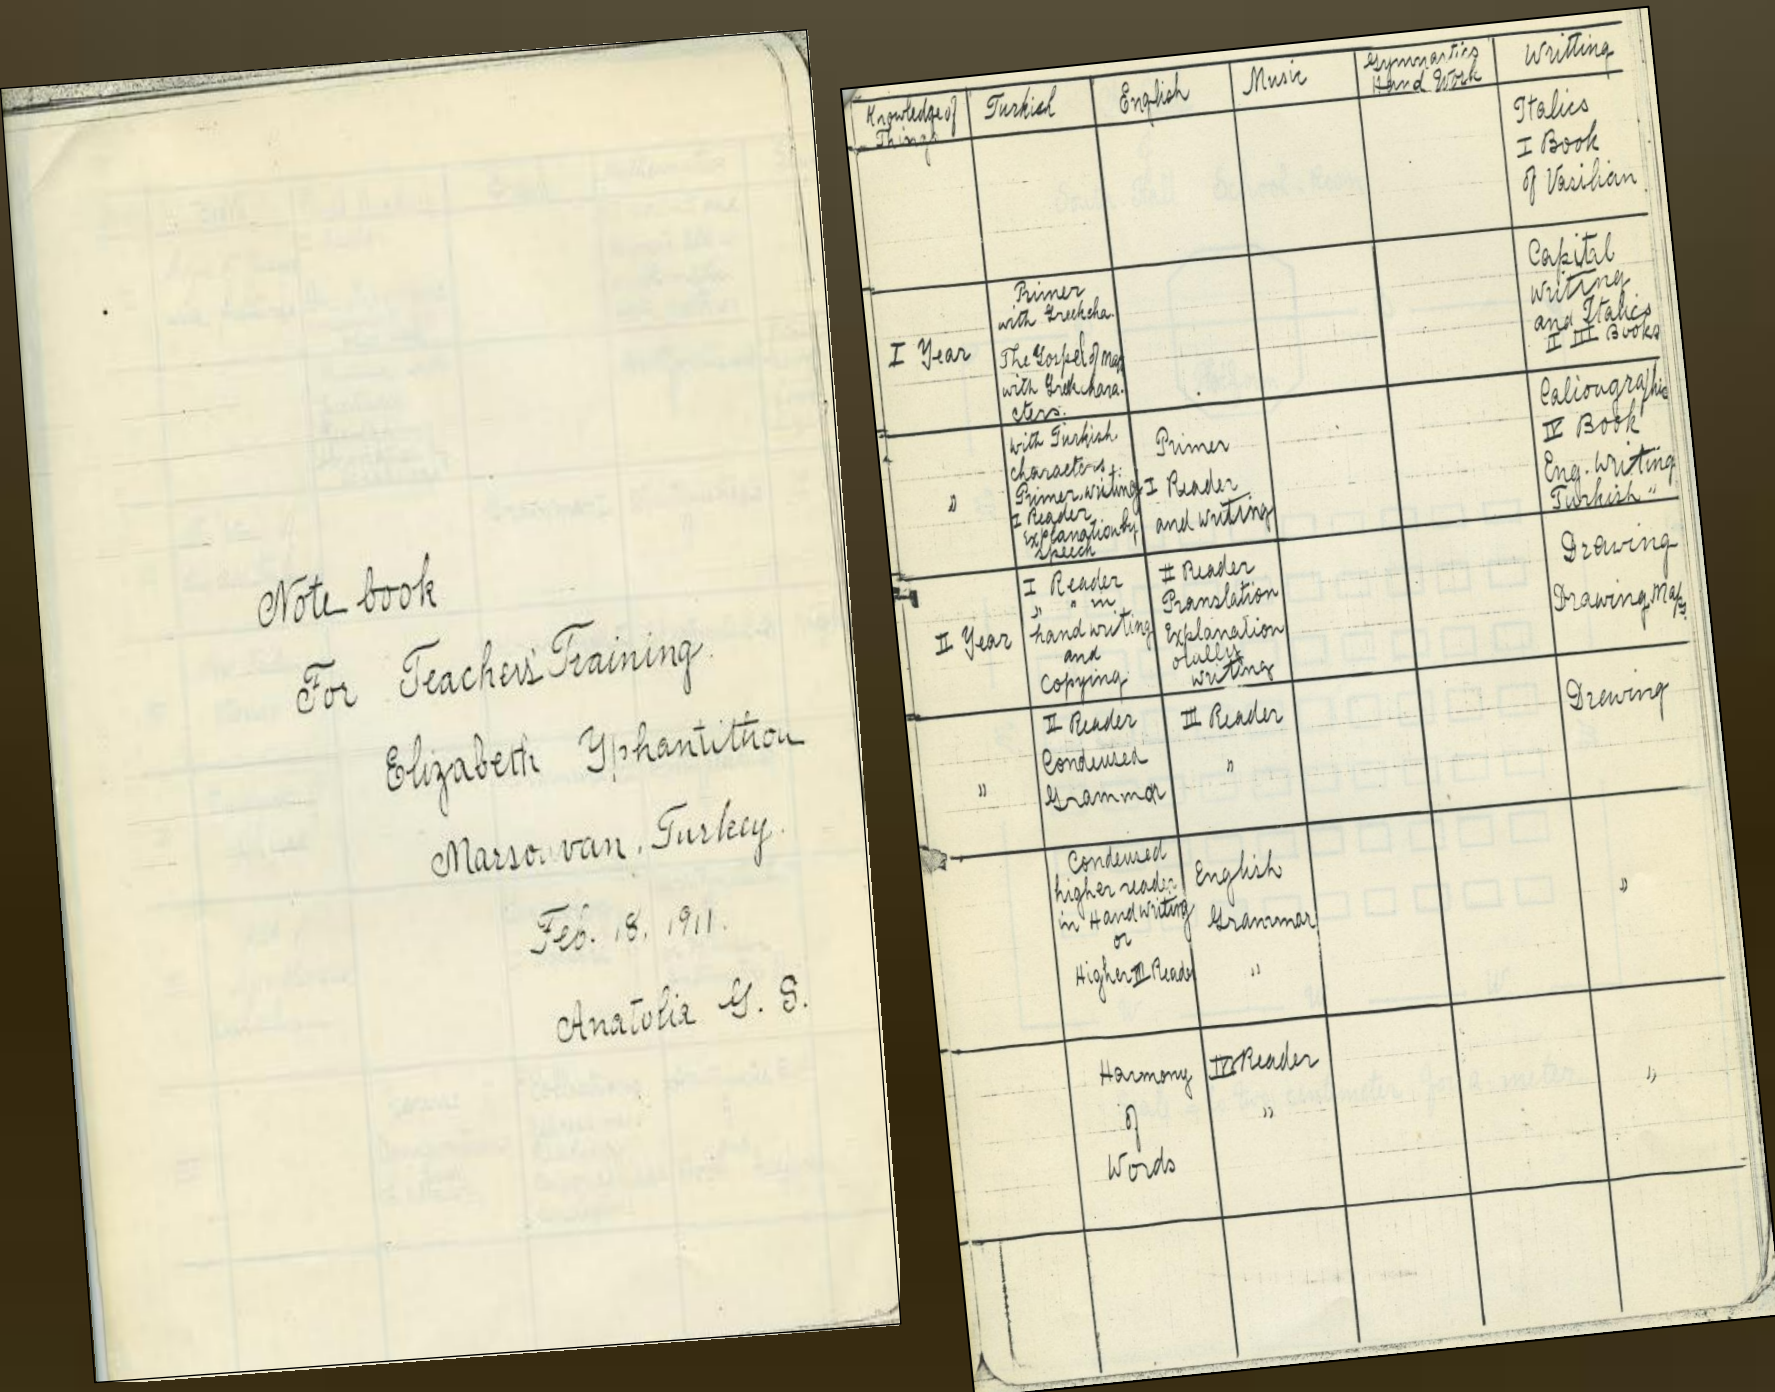 Note book
For Teachers' Training
Elizabeth Yphantithou
Marsovan, Turkey.
Feb. 18. 1911.
Anatolia G. S.
Knowledge of
Things
Turkish
English
Music
Gymnastics
Hand Work
Writting
Italics
I Book
of Vasilian
I Year
Primer
with Greek cha.
The Gospel of Mar
with Greek chara.
cters.
Capital
writing
and Italics
II III Books
"
with Turkish
characters.
Primer, writing
I Reader
Explanation by
speech
Primer
I Reader
and writing
Caliougraphic
IV Book
Eng. writing
Turkish "
II Year
I Reader
" " in
hand writing
and
Copying
II Reader
Translation
Explanation
orally
writing
Drawing
Drawing Map.
"
II Reader
Condensed
Grammar
III Reader
"
Drewing
Condensed
higher reader
in Handwriting
or
Higher III Reader
English
Grammar
"
"
Harmony
of
Words
IV Reader
"
"